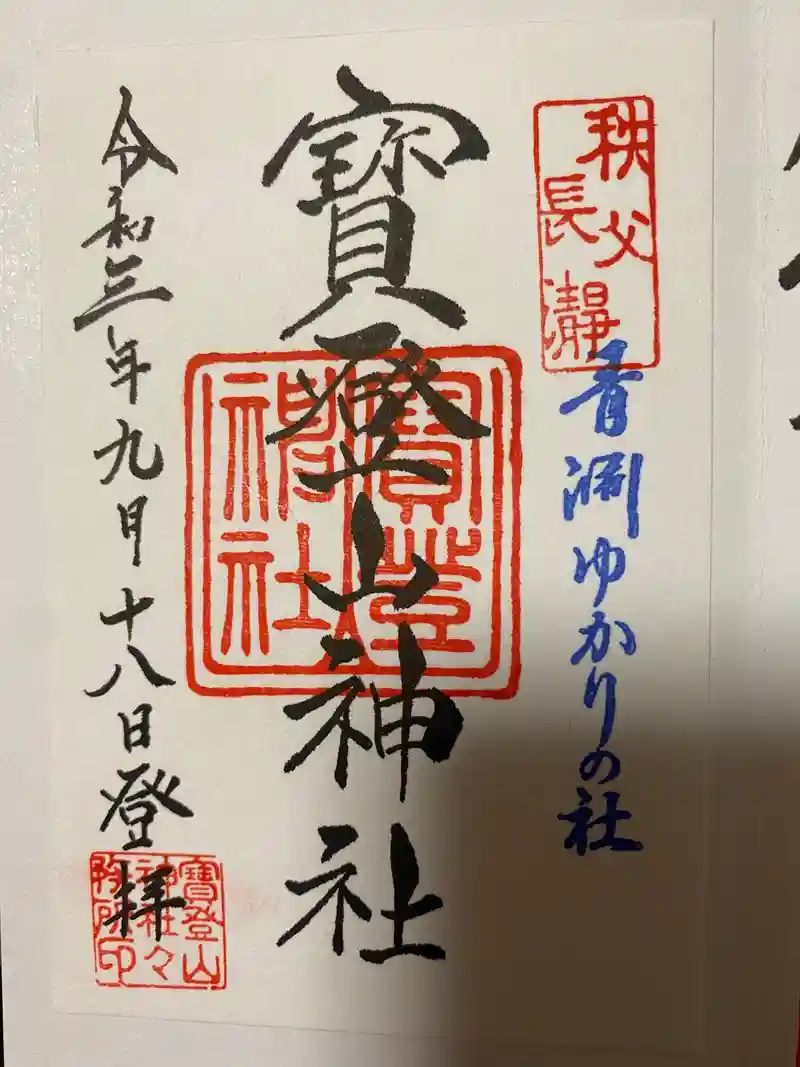 秩父
長瀞
青淵ゆかりの社
寶登山神社
寶登山
神社
令和三年九月十八日登拝
寶登山
神社々
務所印